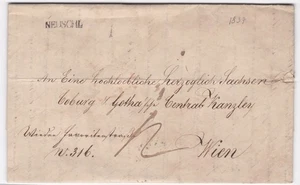 NEUSOHL
1839
An Eine Hochlöbliche Herzoglich Sachsen
Coburg Gotha'sche Central Kanzley
Wieden
N. 316.
Wien